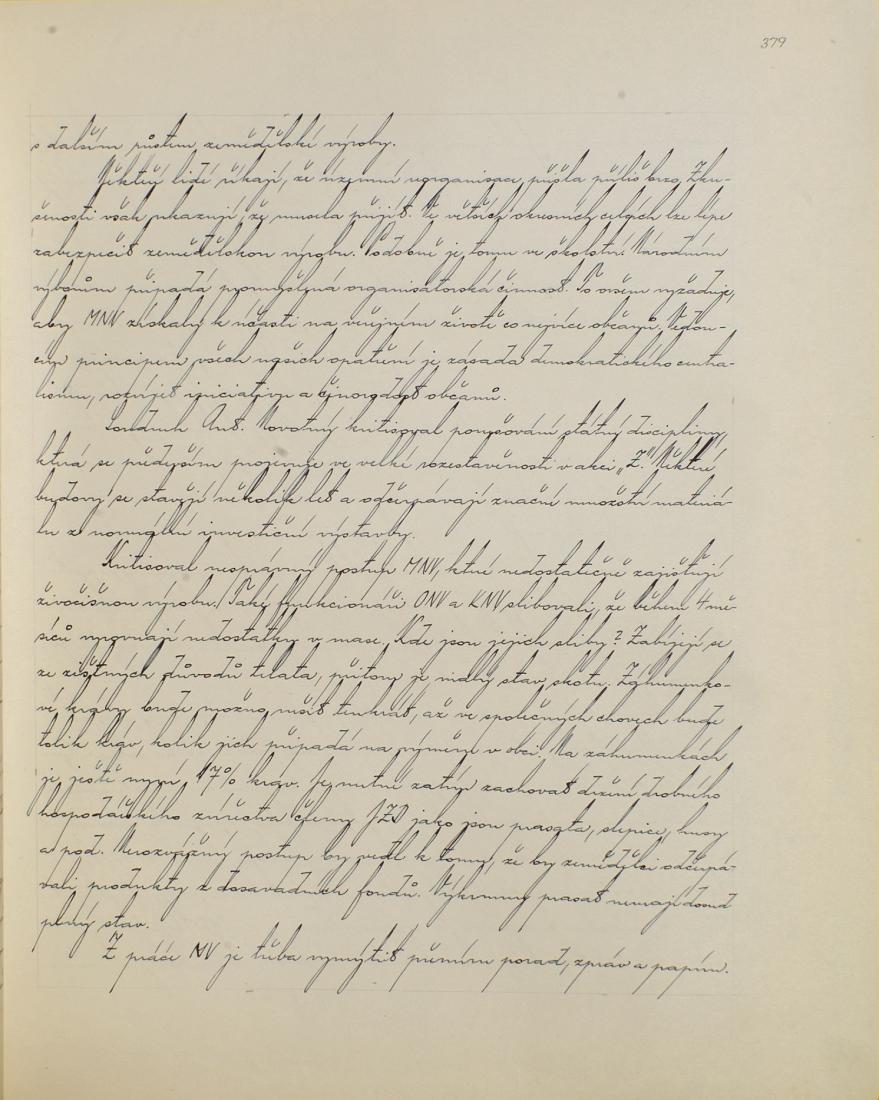 379
s dalším růstem zemědělské výroby.
Někteří lidé říkají, že územní reorganisace přišla příliš brzo. Zku-
šenosti však ukazují, že musela přijít. Ve větších okresních celcích lze lépe
zabezpečit zemědělskou výrobu. Podobně je tomu ve školství. Národním
výborům připadá promyšlená organisátorská činnost. To ovšem vyžaduje,
aby MNV získaly k účasti na veřejném životě co nejvíce občanů. Vedou-
cím principem všech našich opatření je zásada demokratického centra-
lismu, rozvíjet iniciativu a činorodost občanů.
Soudruh Ant. Novotný kritisoval porušování státní disciplíny,
která se především projevuje ve velké rozestavěnosti v akci „Z“. Některé
budovy se stavějí několik let a odčerpávají značné množství materiá-
lu z normální investiční výstavby.
Kritisoval nesprávný postup MNV, které nedostatečně zajišťují
živočišnou výrobu. Také funkcionáři ONV a KNV slibovali, že během 4 mě-
síců vyrovnají nedostatky v mase. Kde jsou jejich sliby? Zabíjejí se
ze zištných důvodů telata, přitom je malý stav skotu. Záhumenko-
vé krávy bude možno rušit tenkrát, až ve společných chovech bude
tolik krav, kolik jich připadá na výměru v obci. Na záhumenkách
je ještě nyní 17% krav. Je nutné zatím zachovat držení drobného
hospodářského zvířectva členy JZD jako jsou prasata, slepice, husy
a pod. Nerozvážný postup by vedl k tomu, že by zemědělci odčerpá-
vali produkty z dosavadních fondů. Výkrmny prasat nemají dosud
plný stav.
Z práce NV je třeba vymýtit přemíru porad, zpráv a papíru.